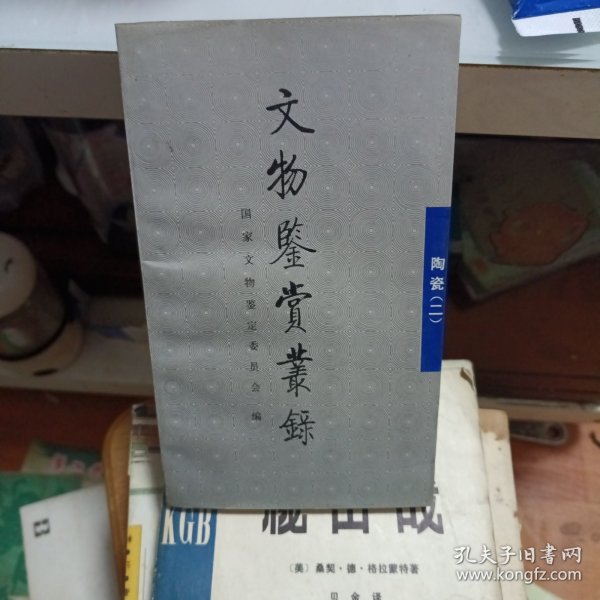 文物鑒賞叢錄
国家文物鉴定委员会 编
陶瓷(二)
KGB
〔美〕桑契·德·格拉蒙特著
贝金译
孔夫子旧书网
www.kongfz.com